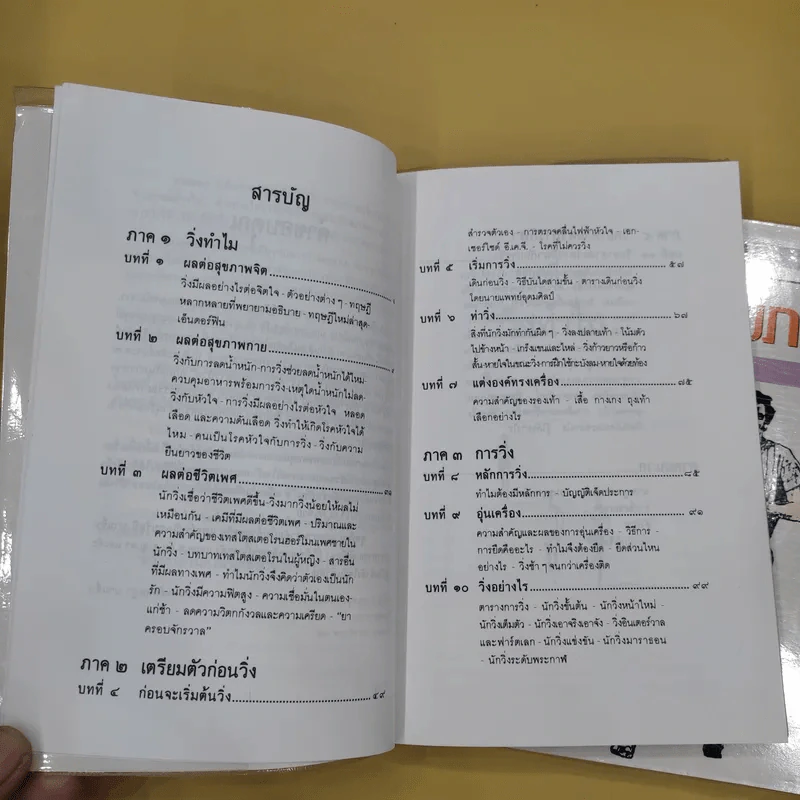 สารบัญ
ภาค ๑ วิ่งทำไม
บทที่ ๑ ผลต่อสุขภาพจิต
วิ่งมีผลอย่างไรต่อจิตใจ - ตัวอย่างต่าง ๆ - ทฤษฎี
หลากหลายที่พยายามอธิบาย - ทฤษฎีใหม่ล่าสุด-
เอ็นดอร์ฟิน
บทที่ ๒ ผลต่อสุขภาพกาย
วิ่งกับการลดน้ำหนัก-การวิ่งช่วยลดน้ำหนักได้ไหม-
ควบคุมอาหารพร้อมการวิ่ง-เหตุใดน้ำหนักไม่ลด-
วิ่งกับหัวใจ - การวิ่งมีผลอย่างไรต่อหัวใจ หลอด
เลือด และความดันเลือด วิ่งทำให้เกิดโรคหัวใจได้
ไหม - คนเป็นโรคหัวใจกับการวิ่ง - วิ่งกับความ
ยืนยาวของชีวิต
บทที่ ๓ ผลต่อชีวิตเพศ ๓๑
นักวิ่งเชื่อว่าชีวิตเพศดีขึ้น-วิ่งมากวิ่งน้อยให้ผลไม่
เหมือนกัน - เคมีที่มีผลต่อชีวิตเพศ - ปริมาณและ
ความสำคัญของเทสโตสเตอโรนฮอร์โมนเพศชายใน
นักวิ่ง - บทบาทเทสโตสเตอโรนในผู้หญิง - สารอื่น
ที่มีผลทางเพศ - ทำไมนักวิ่งจึงคิดว่าตัวเองเป็นนัก
รัก - นักวิ่งมีความฟิตสูง - ความเชื่อมั่นในตนเอง-
แก่ช้า - ลดความวิตกกังวลและความเครียด - "ยา
ครอบจักรวาล"
ภาค ๒ เตรียมตัวก่อนวิ่ง
บทที่ ๔ ก่อนจะเริ่มต้นวิ่ง ๔๙
สำรวจตัวเอง - การตรวจคลื่นไฟฟ้าหัวใจ - เอก-
เซอร์ไซส์ อี.เค.จี. - โรคที่ไม่ควรวิ่ง
บทที่ ๕ เริ่มการวิ่ง ๕๗
เดินก่อนวิ่ง - วิธีบันไดสามขั้น - ตารางเดินก่อนวิ่ง
โดยนายแพทย์อุดมศิลป์
บทที่ ๖ ท่าวิ่ง ๖๗
สิ่งที่นักวิ่งมักทำกันผิด ๆ - วิ่งลงปลายเท้า - โน้มตัว
ไปข้างหน้า - เกร็งแขนและไหล่ - วิ่งก้าวยาวหรือก้าว
สั้น-หายใจในขณะวิ่ง-การฝึกใช้กะบังลม-หายใจด้วยท้อง
บทที่ ๗ แต่งองค์ทรงเครื่อง ๗๕
ความสำคัญของรองเท้า - เสื้อ กางเกง ถุงเท้า
เลือกอย่างไร
ภาค ๓ การวิ่ง
บทที่ ๘ หลักการวิ่ง ๘๕
ทำไมต้องมีหลักการ - บัญญัติเจ็ดประการ
บทที่ ๙ อุ่นเครื่อง ๙๑
ความสำคัญและผลของการอุ่นเครื่อง - วิธีการ -
การยืดคืออะไร - ทำไมจึงต้องยืด - ยืดส่วนไหน
อย่างไร - วิ่งช้า ๆ จนกว่าเครื่องติด
บทที่ ๑๐ วิ่งอย่างไร ๙๙
ตารางการวิ่ง - นักวิ่งขั้นต้น - นักวิ่งหน้าใหม่ -
นักวิ่งเต็มตัว - นักวิ่งเอาจริงเอาจัง - วิ่งอินเตอร์วาล
และฟาร์ตเลก - นักวิ่งแข่งขัน - นักวิ่งมาราธอน
- นักวิ่งระดับพระกาฬ